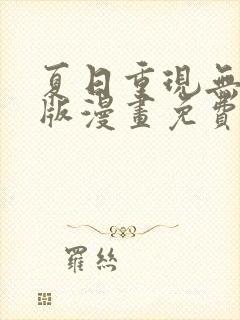 夏日重現無
版漫畫免費
羅絲